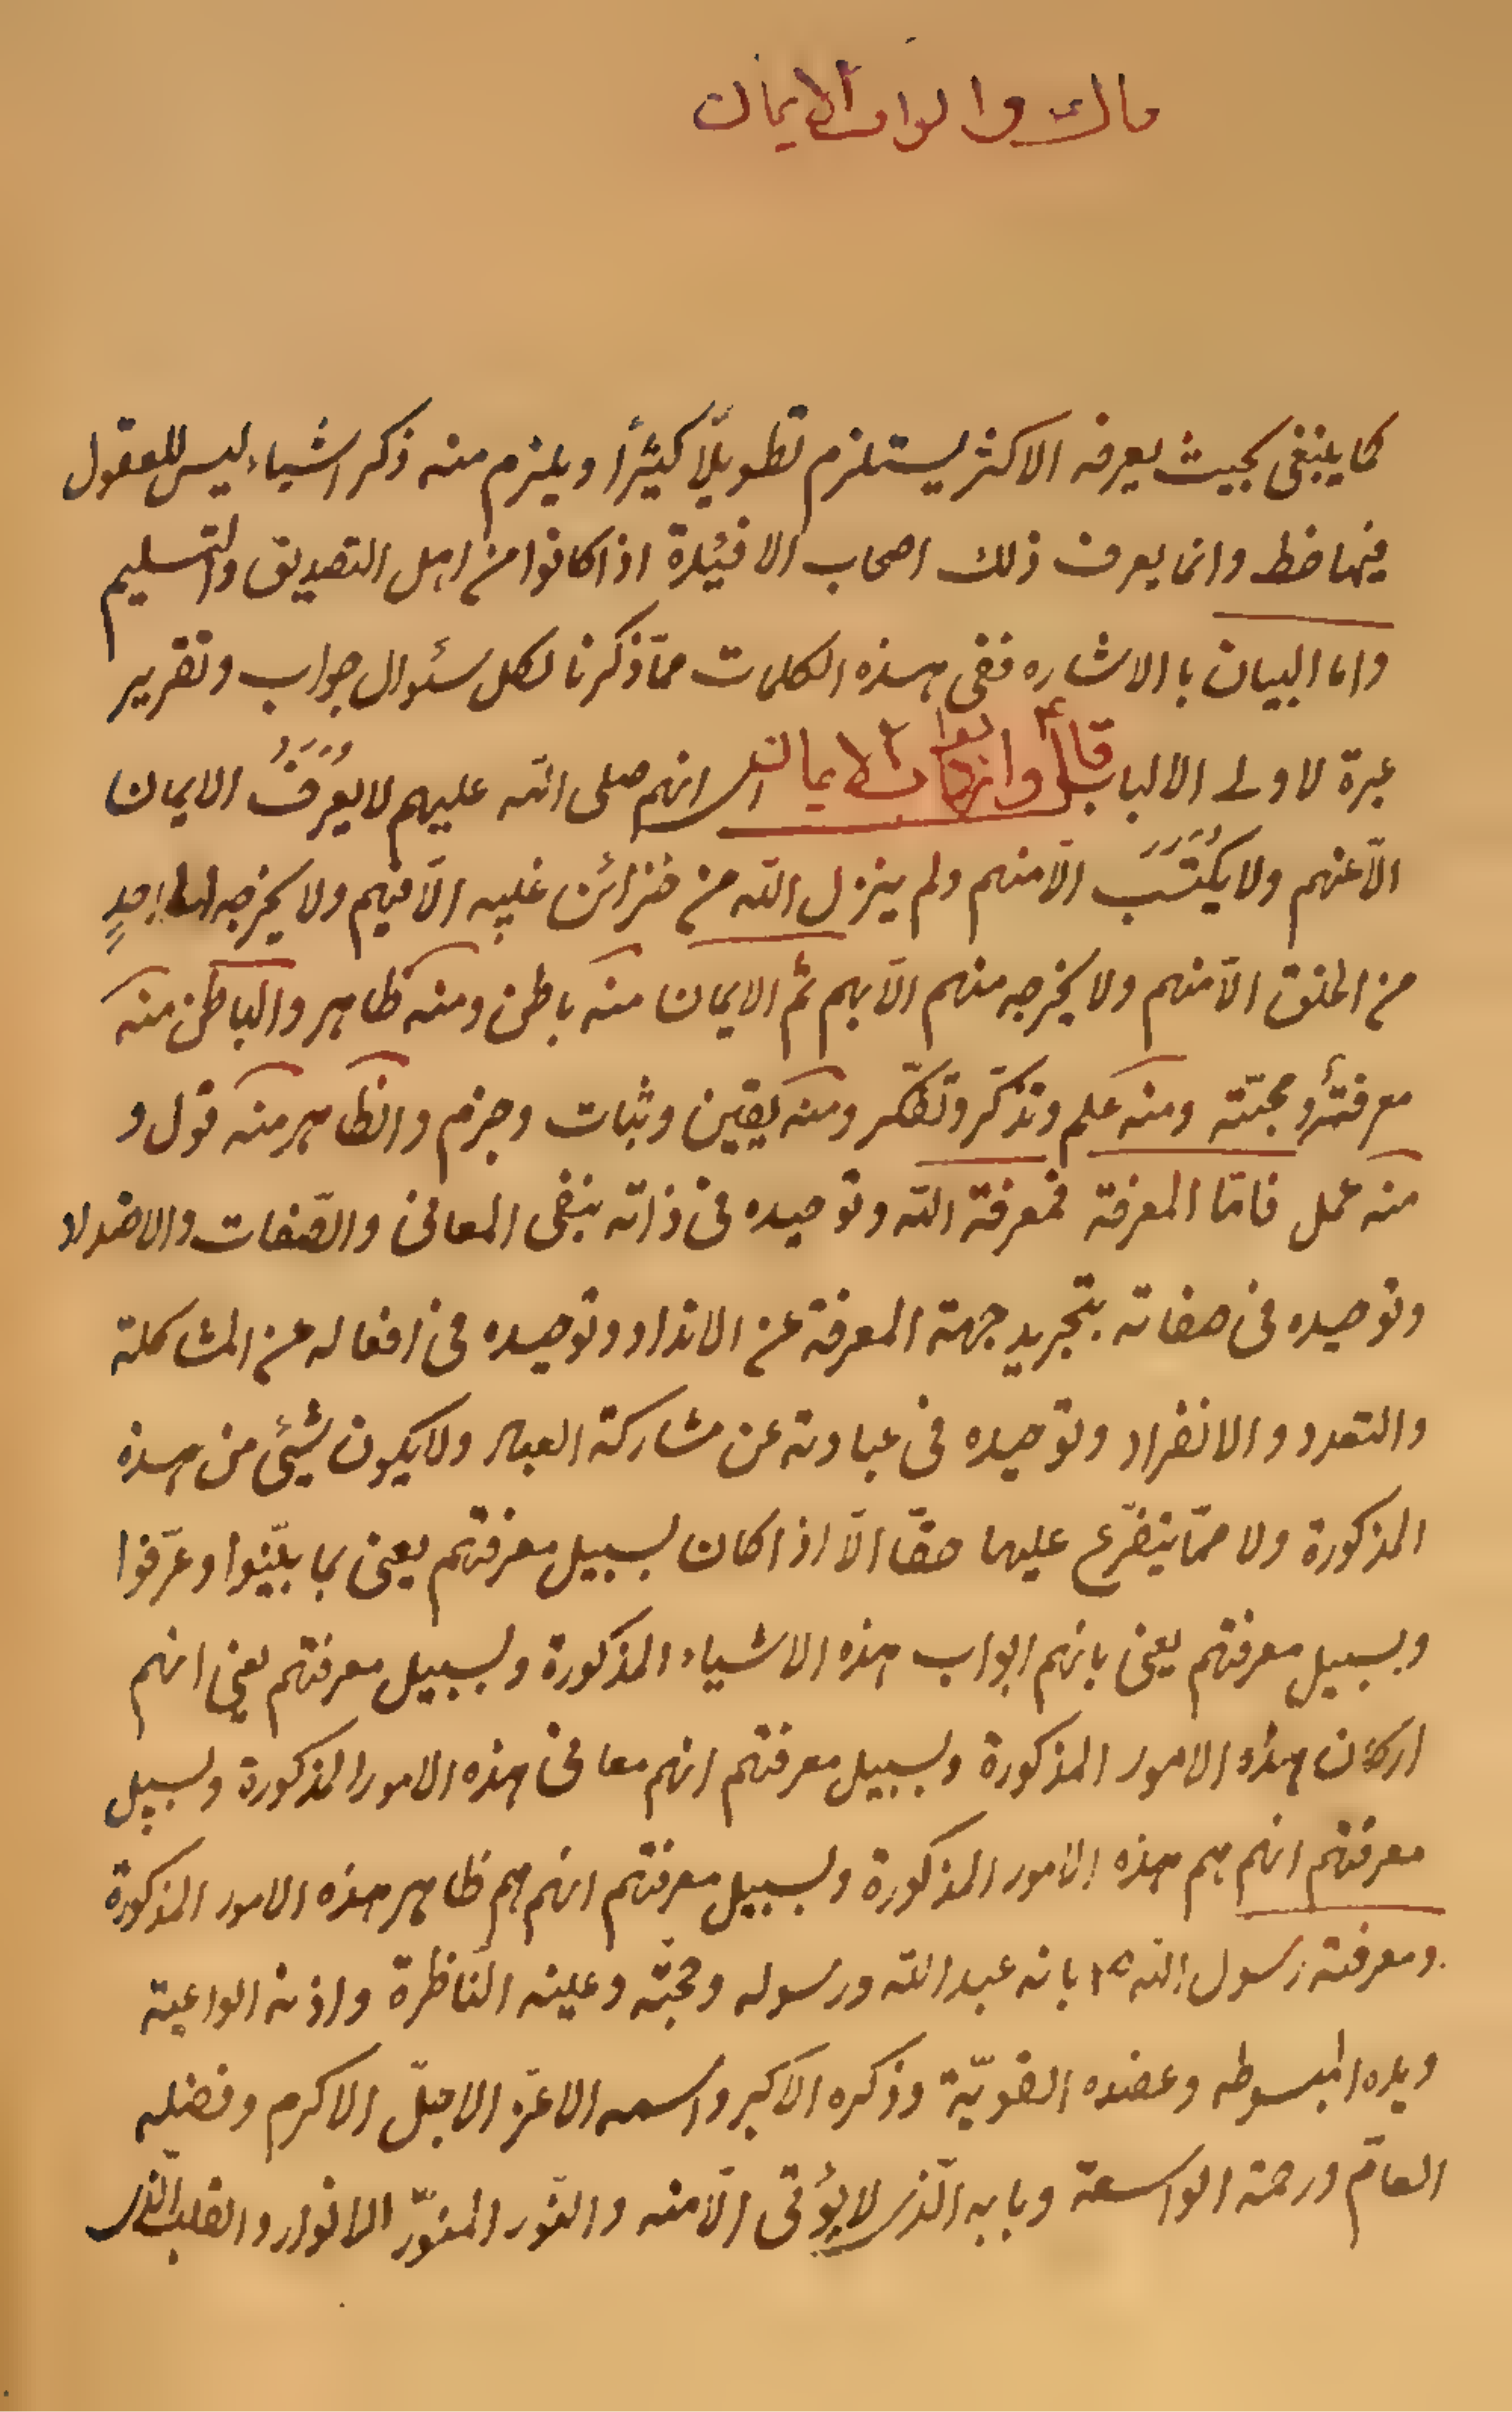 قال وابواب الايمان
كما ينبغى بحيث يعرفه الاكثر يستلزم تطويلًا كثيرًا ويلزم منه ذكر اشياء ليس للعقول
فيها حظ وانما يعرف ذلك اصحاب الافئدة اذا كانوا من اهل التصديق والتسليم
واما البيان باالاشاره ففى هذه الكلمات ممّا ذكرنا لكل سئوال جواب وتقرير
عبرة لاولى الالباب قال وابواب الايمان انهم صلى الله عليهم لا يُعرَفُ الايمان
الّا عنهم ولا يُكتَسَب الّا منهم ولم ينزل الله من خزائن غيبه الّا فيهم ولا يخرجه احدٍ
من الخلق الّا منهم ولا يخرجه منهم الّا بهم ثم الايمان منه باطن ومنه ظاهر والباطن منه
معرفةٌ ومحبّته ومنه علم وتذكّر وتفكّر ومنه يقين وثبات وجزم والظاهر منه قول و
منه عمل فامّا المعرفة فمعرفة الله وتوحيده فى ذاته بنفى المعانى والصّفات والاضداد
وتوحيده فى صفاته بتجريد جهة المعرفة عن الانداد وتوحيده فى افعاله عن المشاكلة
والتعدد والانفراد وتوحيده فى عبادته عن مشاركة العباد ولا يكون شيئى من هذه
المذكورة ولا ممّا يتفرّع عليها حقّا الّا اذا كان بسبيل معرفتهم يعنى بما بيّنوا وعرّفوا
وبسبيل معرفتهم يعنى بانهم ابواب هذه الاشياء المذكورة وبسبيل معرفتهم يعنى انهم
اركان هذه الامور المذكورة وبسبيل معرفتهم انهم معانى هذه الامور المذكورة وبسبيل
معرفتهم انهم هم هذه الامور المذكورة وبسبيل معرفتهم انهم هم ظاهر هذه الامور المذكورة
ومعرفة رسول الله ص بانه عبد الله ورسوله ومحبّته وعينه النّاظرة واذنه الواعية
ويده المبسوطه وعضده القويّة وذكره الاكبر واسمه الاعزّ الاجلّ الاكرم وفضله
العامّ ورحمته الواسعة وبابه الّذى لا يؤتى الّا منه والنّور المنوّر الانوار والقلب الّذى